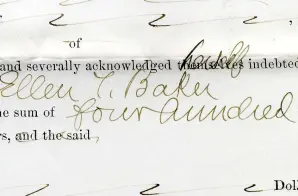 of
and severally acknowledged themselves indebted
Ellen T. Baker
he sum of four Hundred
rs, and the said
Doll